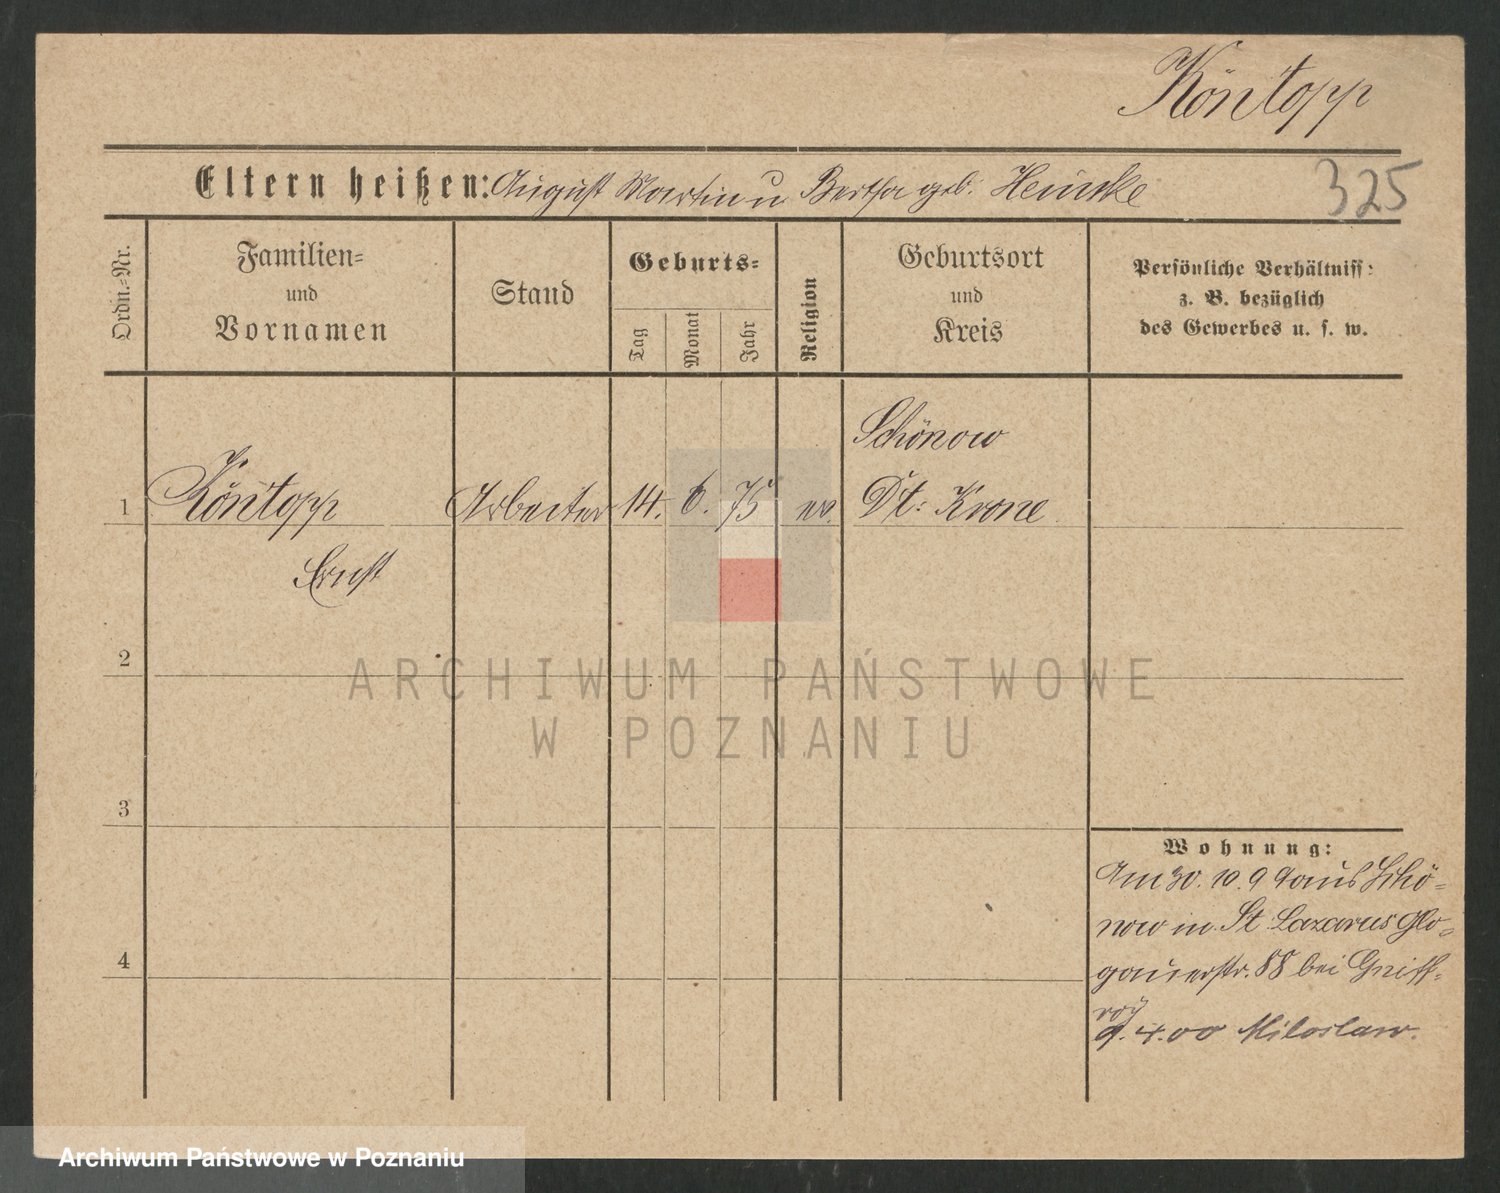 Köntopp
Eltern heißen: August Martin u Bertha geb. Heincke
325
Ordn.-Nr.
Familien-
und
Vornamen
Stand
Geburts-
Tag
Monat
Jahr
Religion
Geburtsort
und
Kreis
Persönliche Verhältniss:
z. B. bezüglich
des Gewerbes u. s. w.
1
Köntopp
Ernst
Arbeiter
14.
6.
75
ev.
Schönow
Dt: Krone
2
3
4
Wohnung:
Am 30. 10. 9 aus Schö-
now in St. Lazarus Glo-
gauerstr. 88 bei
9. 4. 00 Miloslaw.
ARCHIWUM PAŃSTWOWE
W POZNANIU
Archiwum Państwowe w Poznaniu